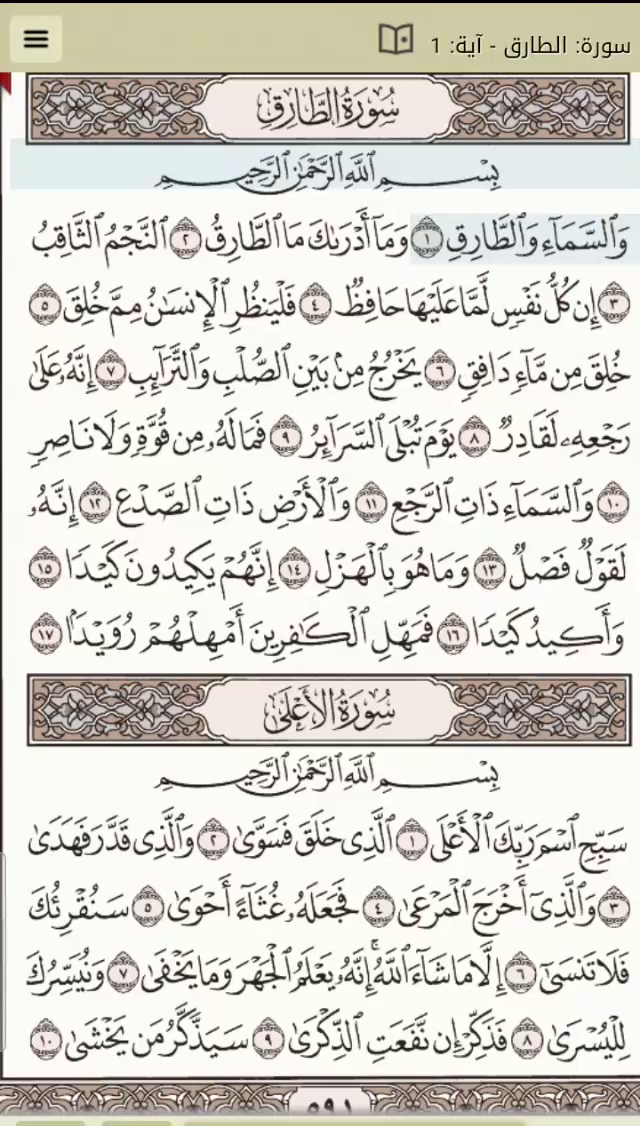 سورة: الطارق - آية: 1
سُورَةُ الطَّارِقِ
بِسْمِ اللَّهِ الرَّحْمَٰنِ الرَّحِيمِ
وَالسَّمَاءِ وَالطَّارِقِ ١ وَمَا أَدْرَىٰكَ مَا الطَّارِقُ ٢ النَّجْمُ الثَّاقِبُ
٣ إِن كُلُّ نَفْسٍ لَّمَّا عَلَيْهَا حَافِظٌ ٤ فَلْيَنظُرِ الْإِنسَٰنُ مِمَّ خُلِقَ ٥
خُلِقَ مِن مَّاءٍ دَافِقٍ ٦ يَخْرُجُ مِنۢ بَيْنِ الصُّلْبِ وَالتَّرَائِبِ ٧ إِنَّهُۥ عَلَىٰ
رَجْعِهِۦ لَقَادِرٌ ٨ يَوْمَ تُبْلَى السَّرَائِرُ ٩ فَمَا لَهُۥ مِن قُوَّةٍ وَلَا نَاصِرٍ
١٠ وَالسَّمَاءِ ذَاتِ الرَّجْعِ ١١ وَالْأَرْضِ ذَاتِ الصَّدْعِ ١٢ إِنَّهُۥ
لَقَوْلٌ فَصْلٌ ١٣ وَمَا هُوَ بِالْهَزْلِ ١٤ إِنَّهُمْ يَكِيدُونَ كَيْدًا ١٥
وَأَكِيدُ كَيْدًا ١٦ فَمَهِّلِ الْكَٰفِرِينَ أَمْهِلْهُمْ رُوَيْدًۢا ١٧
سُورَةُ الْأَعْلَىٰ
بِسْمِ اللَّهِ الرَّحْمَٰنِ الرَّحِيمِ
سَبِّحِ اسْمَ رَبِّكَ الْأَعْلَى ١ الَّذِي خَلَقَ فَسَوَّىٰ ٢ وَالَّذِي قَدَّرَ فَهَدَىٰ
٣ وَالَّذِي أَخْرَجَ الْمَرْعَىٰ ٤ فَجَعَلَهُۥ غُثَاءً أَحْوَىٰ ٥ سَنُقْرِئُكَ
فَلَا تَنسَىٰ ٦ إِلَّا مَا شَاءَ اللَّهُ ۚ إِنَّهُۥ يَعْلَمُ الْجَهْرَ وَمَا يَخْفَىٰ ٧ وَنُيَسِّرُكَ
لِلْيُسْرَىٰ ٨ فَذَكِّرْ إِن نَّفَعَتِ الذِّكْرَىٰ ٩ سَيَذَّكَّرُ مَن يَخْشَىٰ ١٠
٥٩١